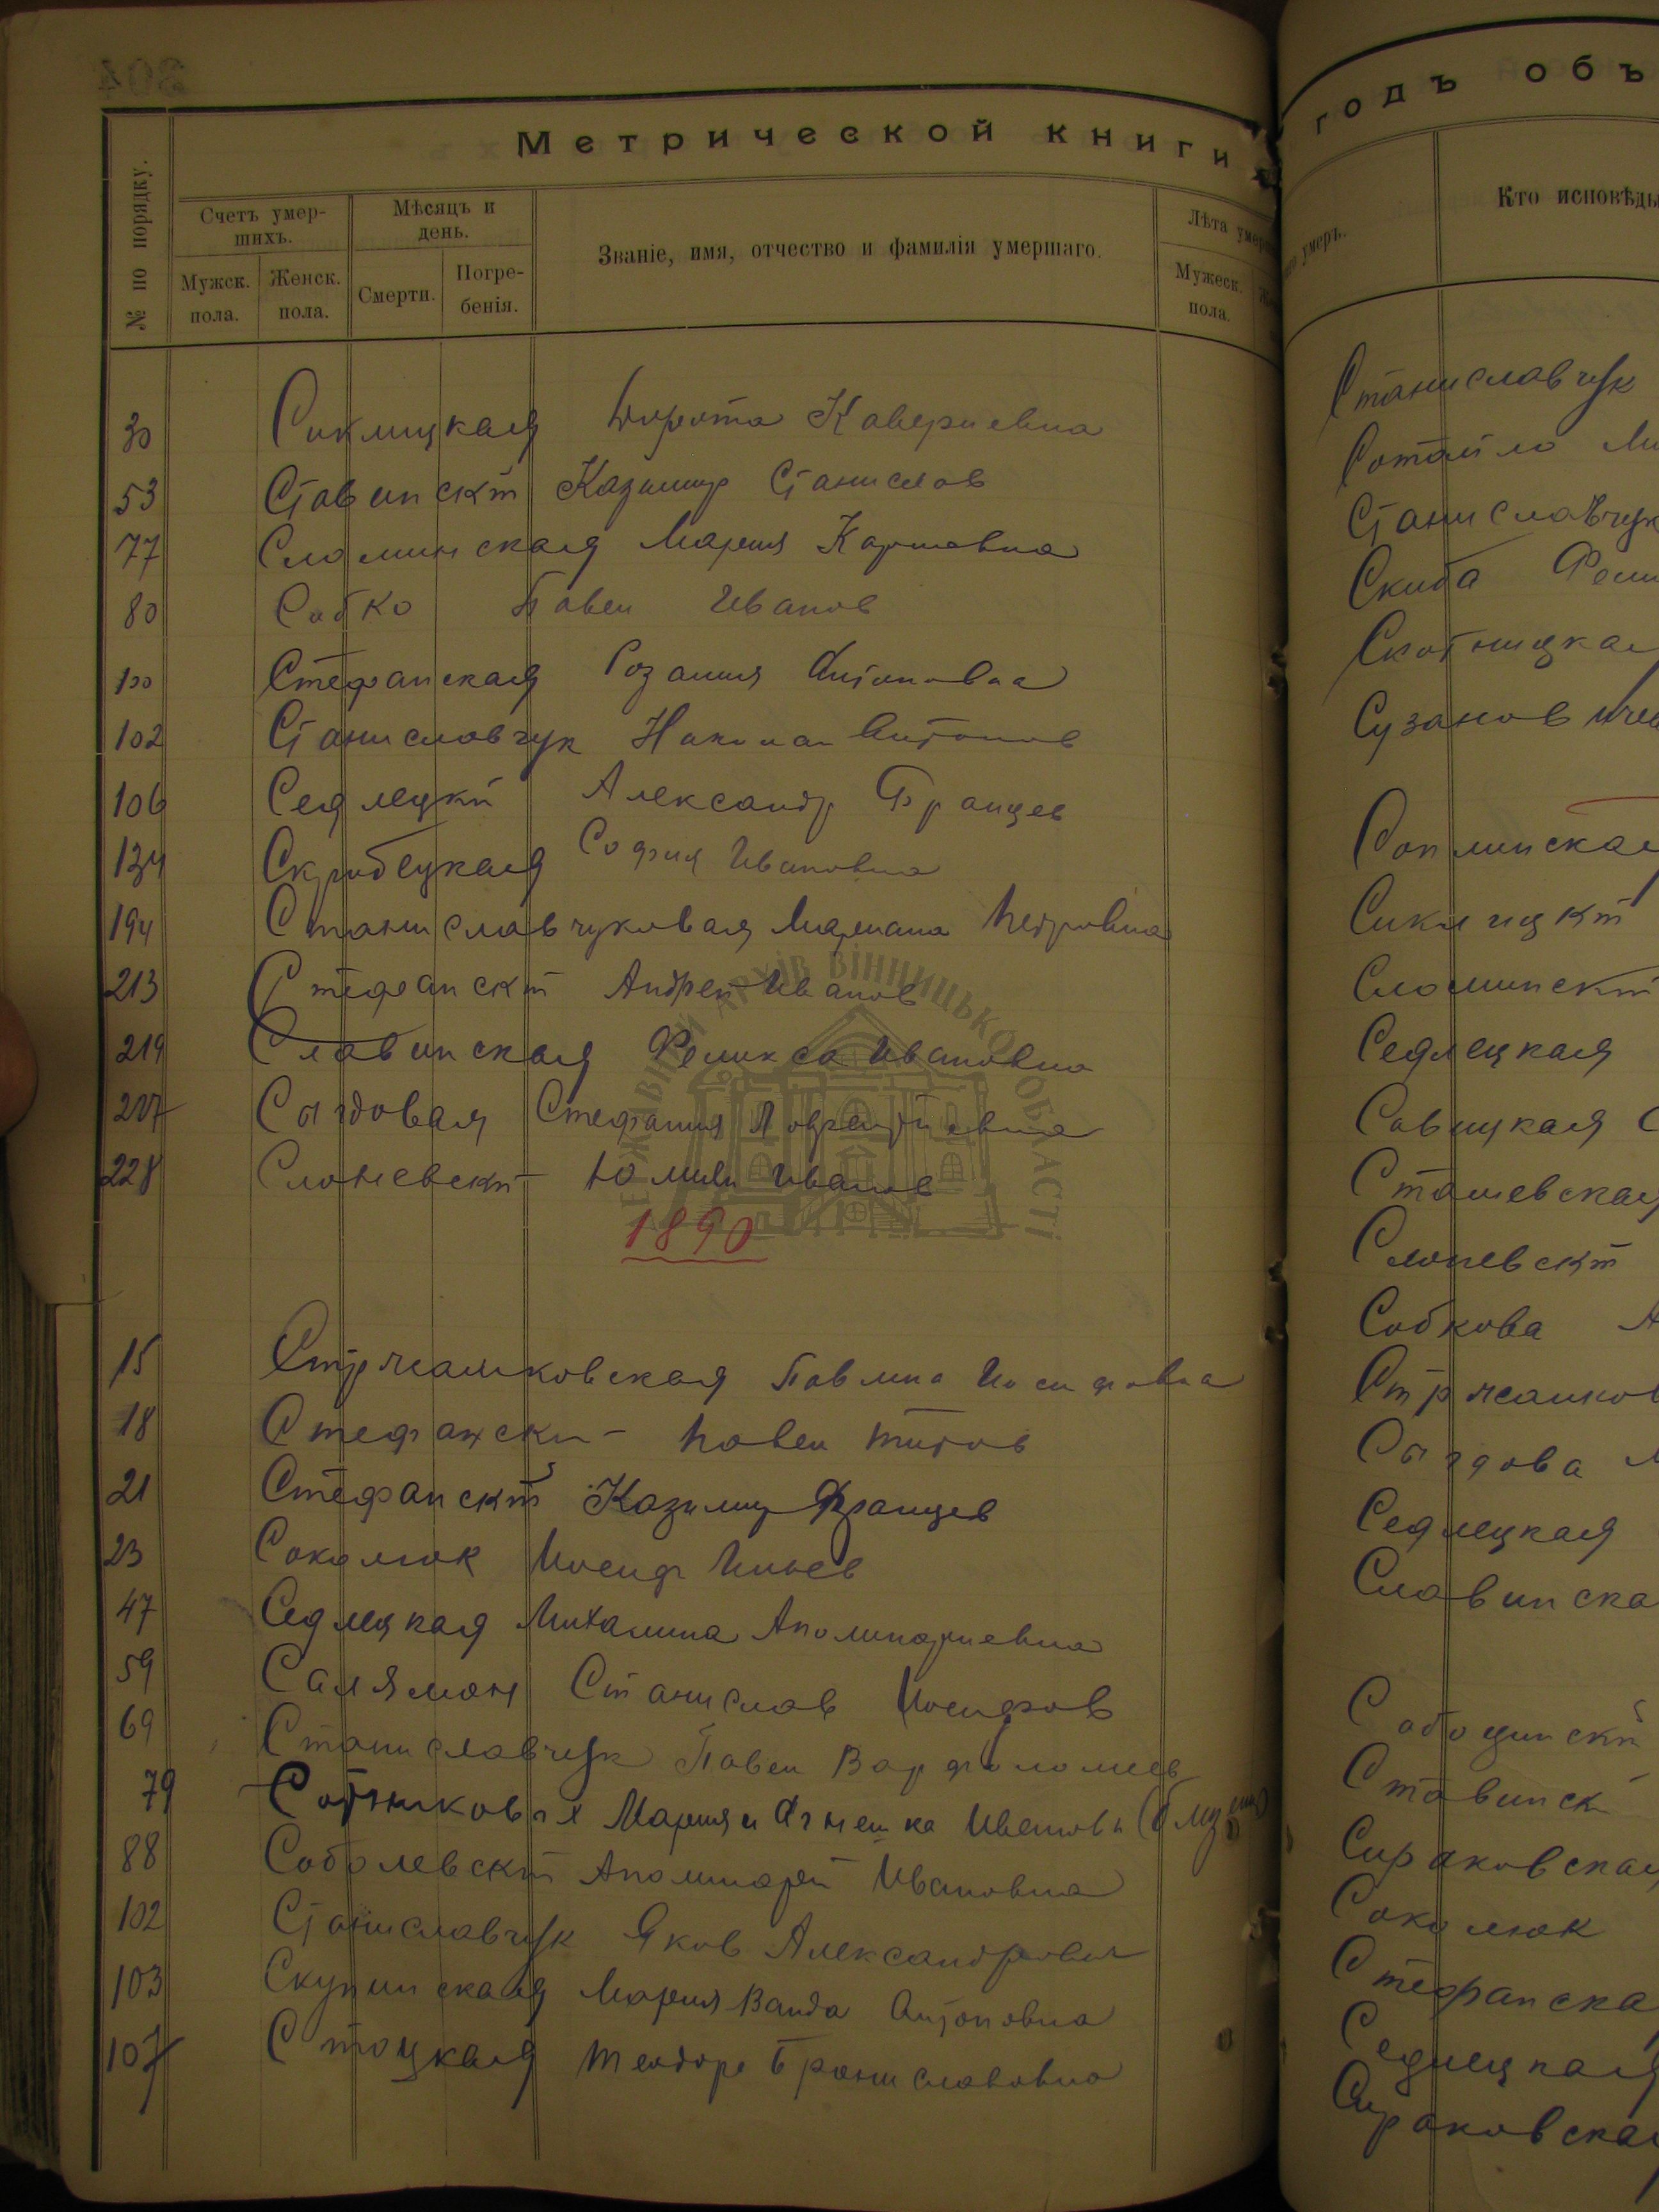 304
Метрической книги
№ по порядку.
Счетъ умер-
шихъ.
Мужск.
пола.
Женск.
пола.
Мѣсяцъ и
день.
Смерти.
Погре-
бенія.
Званіе, имя, отчество и фамилія умершаго.
Лѣта
Мужеск.
пола.
30 Сиклицкая Дорота Кавериевна
53 Ставинскій Казимир Станислов
77 Сломинская Мария
80 Собко Павел Иванов
100 Стефанская Розалия Антоновна
102 Станиславчук Антонов
106 Седлецкій Александр Францев
134 Скробецкая София Ивановна
194 Станиславчуковая Мариана Петровна
213 Стефанскій Андрей Иванов
219 Славинская Феликса Ивановна
217 Сыгдовая Стефания
228 Слоневскій Юлиан Иванов
1890
15 Стржалковская Павлина Иосифовна
18 Стефански Павел Титов
21 Стефанскій Казимир Францев
23 Соколюк Иосиф Ильев
47 Седлецкая Михалина Аполинариевна
59 Салямон Станислав Иосифов
69 Станиславчук Павел Варфоломеев
79 Сотниковы Мария и Агнешка Ивановы
88 Соболевскій Аполинарій Ивановна
102 Станиславчук Яков Александрович
103 Скупинская Мария Ванда Антоновна
107 Стоцкая Теодора Брониславовна
годъ объ
умеръ.
Кто исповѣды
Станиславчук
Сотайло
Станиславчук
Скиба
Скотницкая
Сузанович
Соплинская
Сиклицкій
Сломинскій
Седлецкая
Савицкая
Сташевская
Слоневскій
Собкова
Стржалков
Сыгдова
Седлецкая
Славинска
Ободинскій
Ставинск
Сираковская
Соколюк
Стефанска
Седлецкая
Сираковская